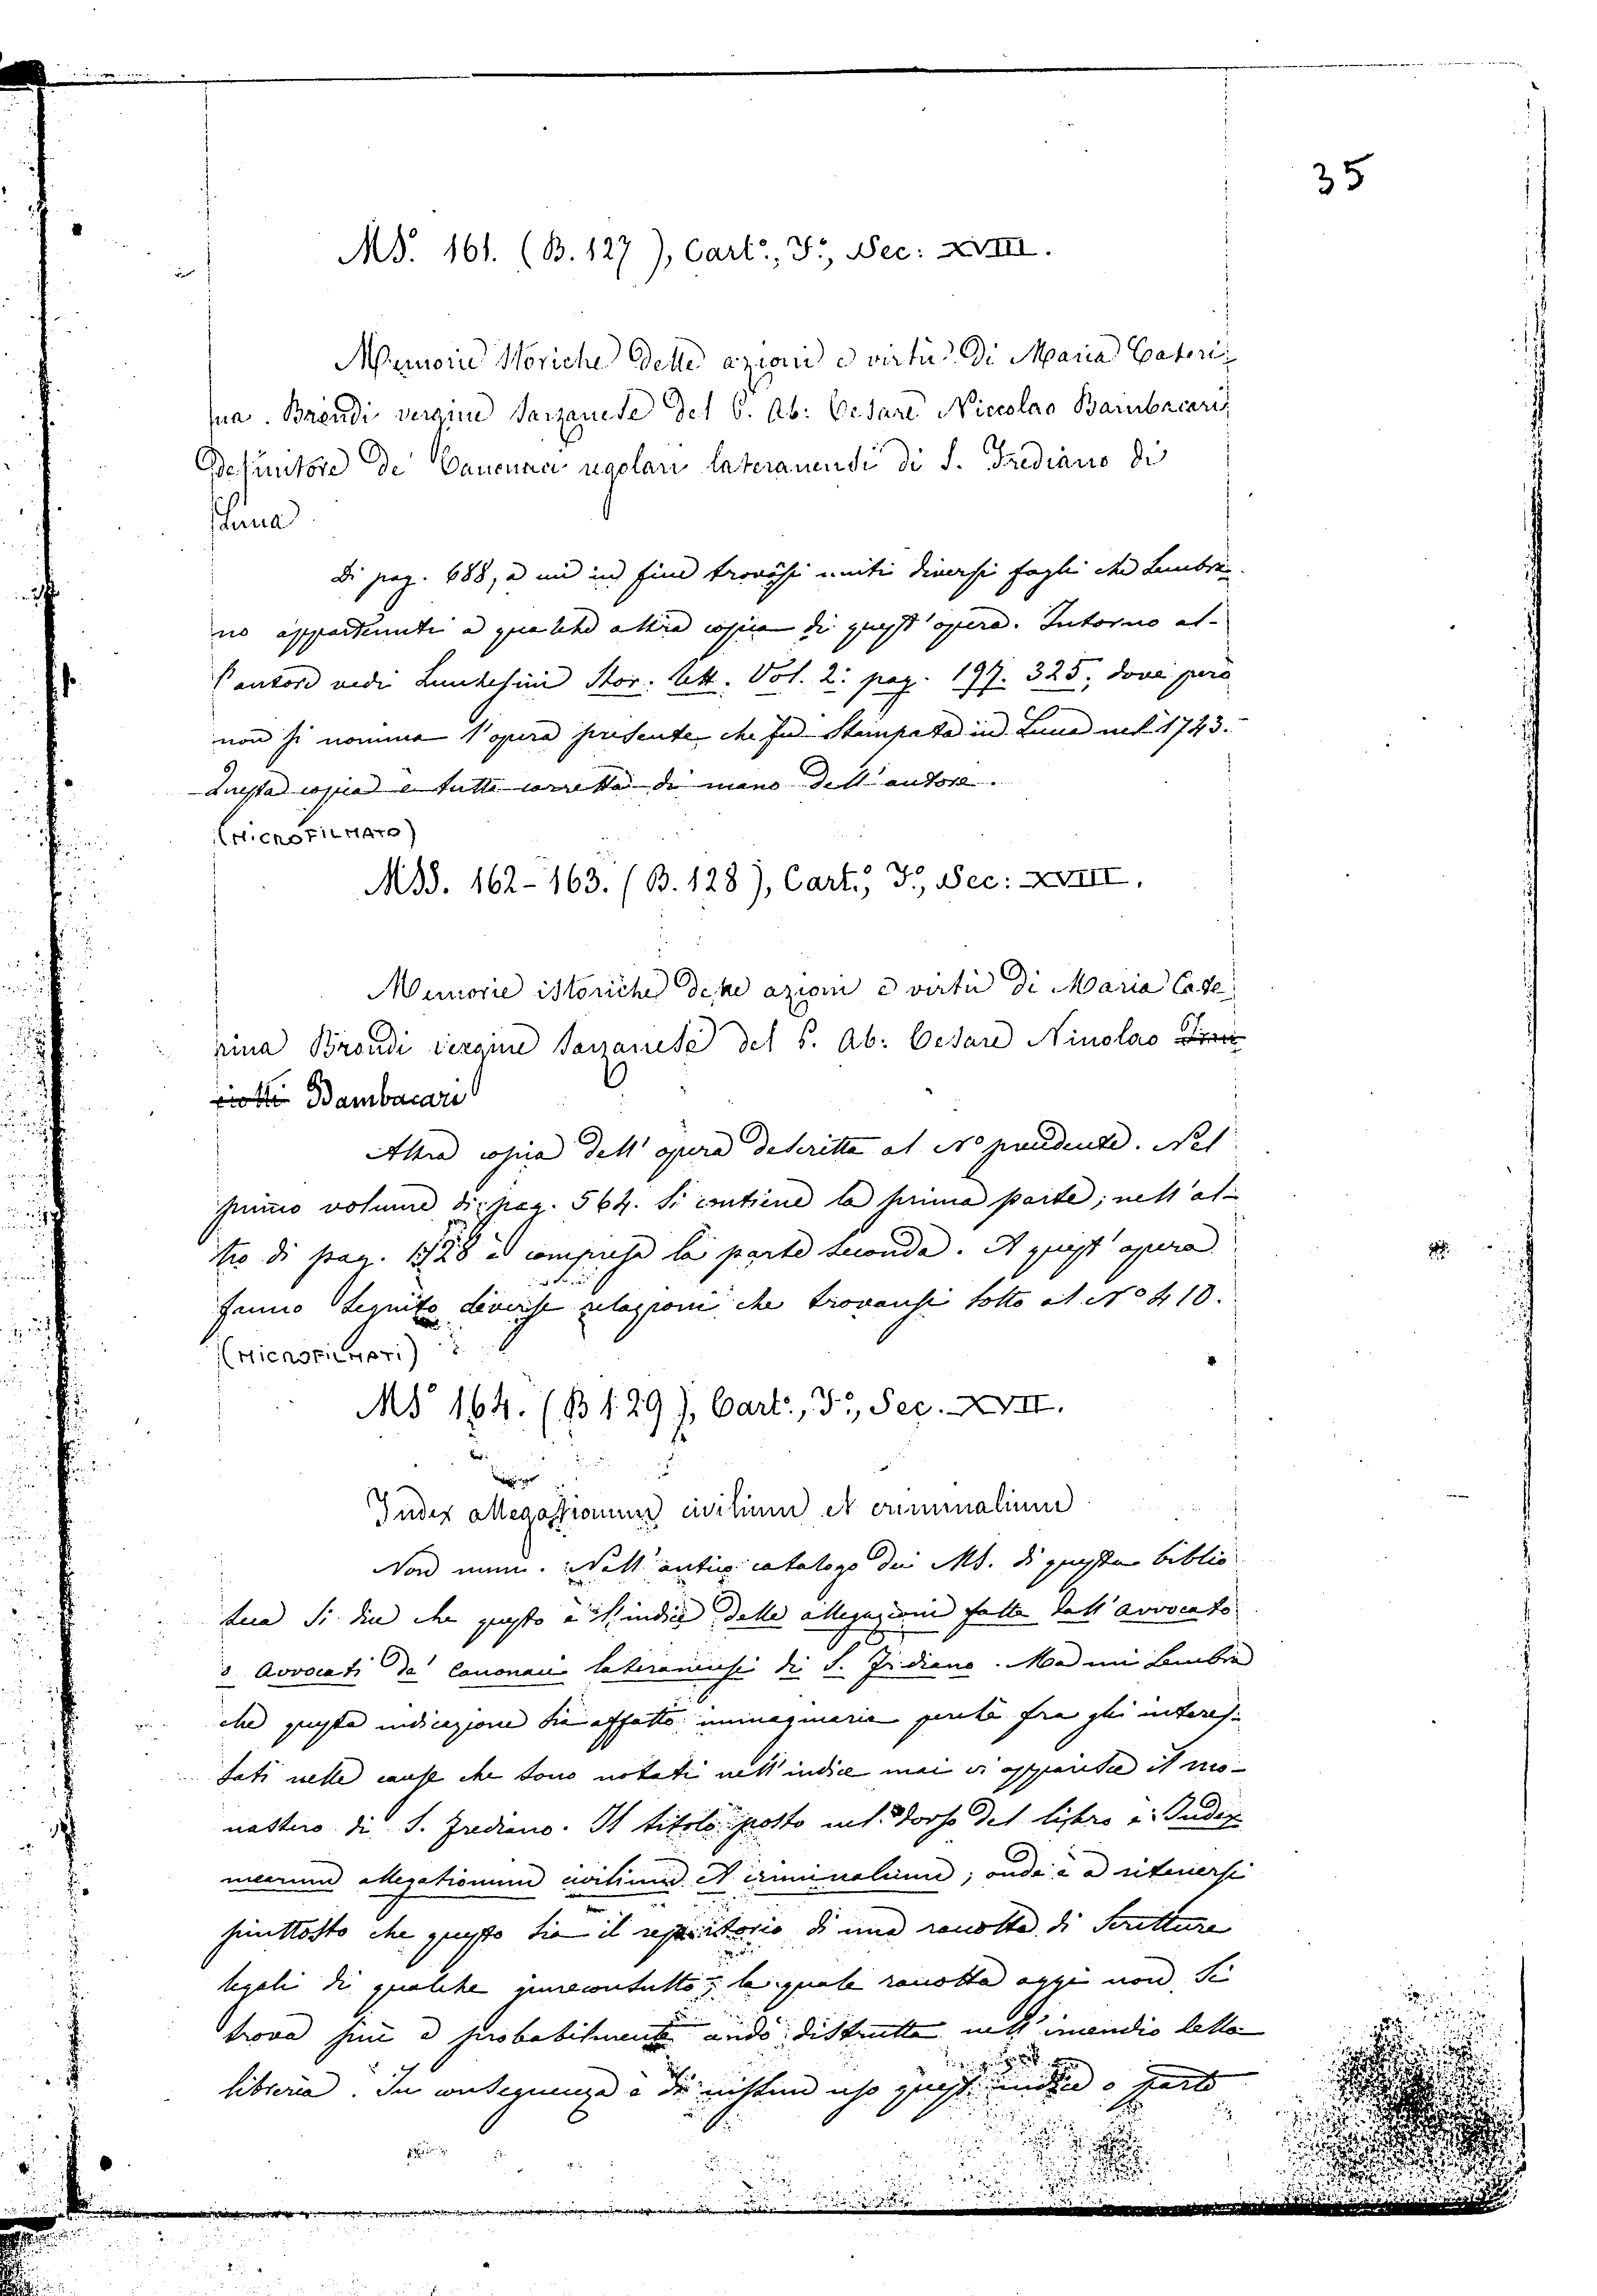 35
MS. 161. (B. 127), Cart:, F:, Sec: XVIII.
Memorie storiche delle azioni e virtù di Maria Cateri-
na. Brondi vergine Sarzanese del P. Ab: Cesare Niccolao Bambacari,
Definitore de' Canonaci regolari lateranensi di S. Frediano di
Lucca
Di pag. 688, a cui in fine trovasi uniti diversi fogli che sembra-
no appartenuti a qualche altra copia di quest' opera. Intorno al-
l' autore vedi Lucchesini Stor. lett. Vol. 2: pag. 197. 325, dove però
non si nomina l' opera presente che fu stampata in Lucca nel 1743.
Questa copia è tutta corretta di mano dell' autore.
(MICROFILMATO)
MSS. 162-163. (B. 128), Cart:, F:, Sec: XVIII.
Memorie istoriche delle azioni e virtù di Maria Cate-
rina Brondi vergine Sarzanese del P. Ab: Cesare Nicolao
Bambacari
Altra copia dell' opera descritta al No precedente. Nel
primo volume di pag. 564. si contiene la prima parte; nell' al-
tro di pag. 1128 è compresa la parte seconda. A quest' opera
fanno seguito diverse relazioni che trovansi sotto al No 410.
(MICROFILMATI)
MS 164. (B 129), Cart:, F:, Sec. XVII.
Index allegationum civilium et criminalium
Non num. Nell' antico catalogo dei MS. di questa biblio
teca si dice che questo è l' indice delle allegazioni fatte dall' avvocato
o Avvocati de' Canonaci lateranensi di S. Fridiano. Ma mi sembra
che questa indicazione sia affatto immaginaria perchè fra gli interes-
sati nelle cause che sono notati nell' indice mai vi apparisce il mo-
nastero di S. Frediano. Il titolo posto nel dorso del libro è: Index
mearum allegationum civilium et criminalium; onde è a ritenersi
piuttosto che questo sia il repertorio di una raccolta di scritture
legali di qualche giureconsulto, la quale raccolta oggi non si
trova più e probabilmente andò distrutta nell' incendio della
libreria. In conseguenza è di nissun uso quest' indice o parte